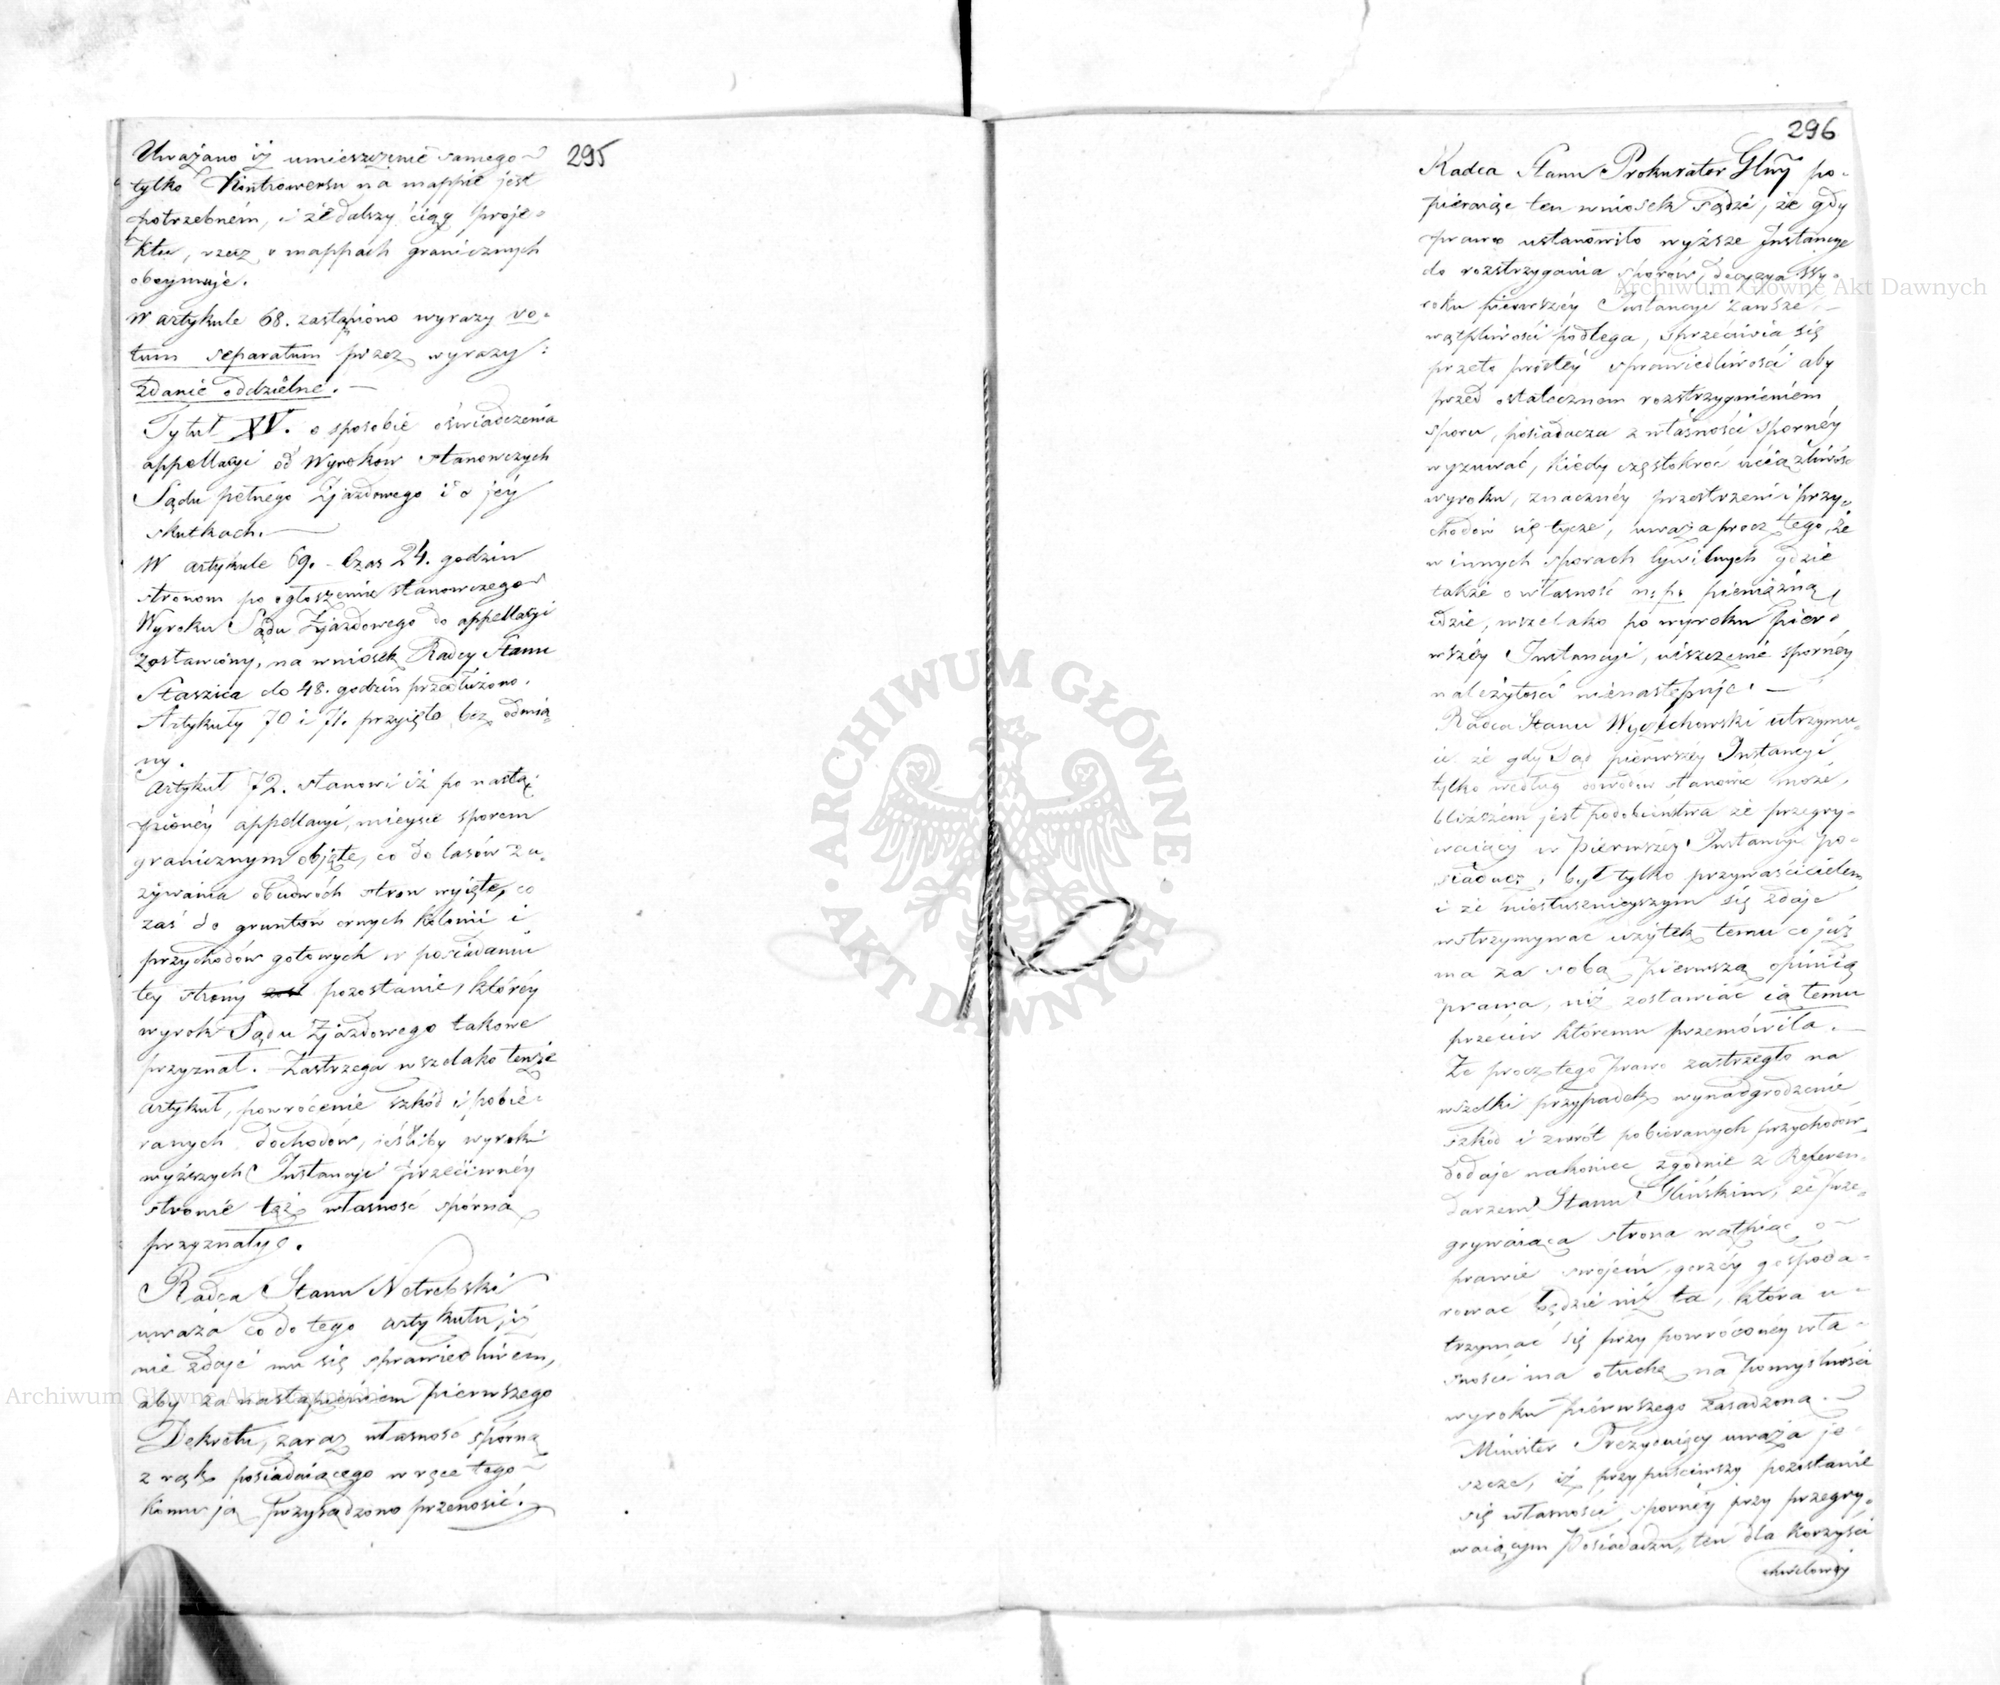 295
Uważano iż umieszczenie samego
tylko Kontrowersu na mappie jest
potrzebném, i że dalszy ciąg proje-
ktu, rzecz o mappach granicznych
obeymuje.
W artykule 68. zastąpiono wyrazy vo-
tum separatum przez wyrazy:
zdanie oddzielne. —
Tytuł XV. o sposobie oświadczenia
appellacyi od Wyroków stanowczych
Sądu pełnego Zjazdowego i o jéy
skutkach. —
W artykule 69. Czas 24. godzin
stronom po ogłoszenie stanowczego
Wyroku Sądu Zjazdowego do appellacyi
zostawiony, na wniosek Radcy Stanu
Staszica do 48. godzin przedłużono.
Artykuły 70 i 71. przyjęto bez odmia-
ny.
Artykuł 72. stanowi iż po nastą-
pionéy appellacyi, mieysce sporem
graniczném objęte, co do lasów zu-
żywania obudwóch stron wyjęte, co
zaś do gruntów ornych kolonii i
przychodów gotowych w posiadaniu
tey strony pozostanie, któréy
wyrok Sądu Zjazdowego takowe
przyznał. Zastrzega wszelako tenże
artykuł, powrócenie szkód i pobie-
ranych dochodów, jeśliby wyroki
wyższych Instancyi przeciwnéy
stronie też własność sporną
przyznały.
Radca Stanu Notrebski
uważa co do tego artykułu, iż
nie zdaje mu się sprawiedliwém,
aby za nastąpieniem pierwszego
Dekretu, zaraz własność sporną
z rąk posiadaiącego w ręce tego
komu ją przysądzono przenosić.
296
Radca Stanu Prokurator Glny po-
pieraiąc ten wniosek sądzi, że gdy
prawo ustanowiło wyższe Instancye
do rozstrzygania sporów, decyzya Wy-
roku pierwszéy Instancyi zawsze
wątpliwości podlega, sprzeciwia się
przeto prostéy sprawiedliwości aby
przed ostatecznem rozstrzygnieniem
sporu, posiadacza z własności spornéy
wyzuwać, kiedy częstokroć uciążliwość
wyroku, znacznéy przestrzeni i przy-
chodów się tycze, uważa procz tego, że
w innych sporach Cywilnych gdzie
także o własność n. p. pieniężną
idzie, wszelako po wyroku pier-
wszéy Instancyi, uiszczenie spornéy
należytości nienastępuje. —
Radca Stanu Wyczechowski utrzymu-
ie że gdy Sąd pierwszéy Instancyi
tylko według dowodów stanowić może,
bliższém jest podobieństwa że przegry-
waiący w pierwszéy Instancyi po-
siadacz, był tylko przywłaścicielem
i że niesłuszniejszym się zdaje
wstrzymywać użytek temu co już
ma za sobą pierwszą opinię
prawa, niż zostawiać ią temu
przeciw któremu przemówiła. —
Że procz tego Prawo zastrzegło na
wszelki przypadek wynadgrodzenie
szkód i zwrót pobieranych przychodów
dodaje nakoniec zgodnie z Referen-
darzem Stanu Glińskim, że prze-
grywaiąca strona wątpiąc o
prawie swojém, gorzéy gospoda-
rować będzie niż ta, która u-
trzymać się przy powróconey wła-
sności ma otuchę na pomyślności
wyroku pierwszego zasadzoną. —
Minister Prezyduiący uważa je-
szcze, iż przypuściwszy pozostanie
się własności spornéy przy przegry-
waiącym Posiadaczu, ten dla korzyści
chwilowéy
Archiwum Główne Akt Dawnych
Archiwum Główne Akt Dawnych
ARCHIWUM GŁÓWNE
AKT DAWNYCH